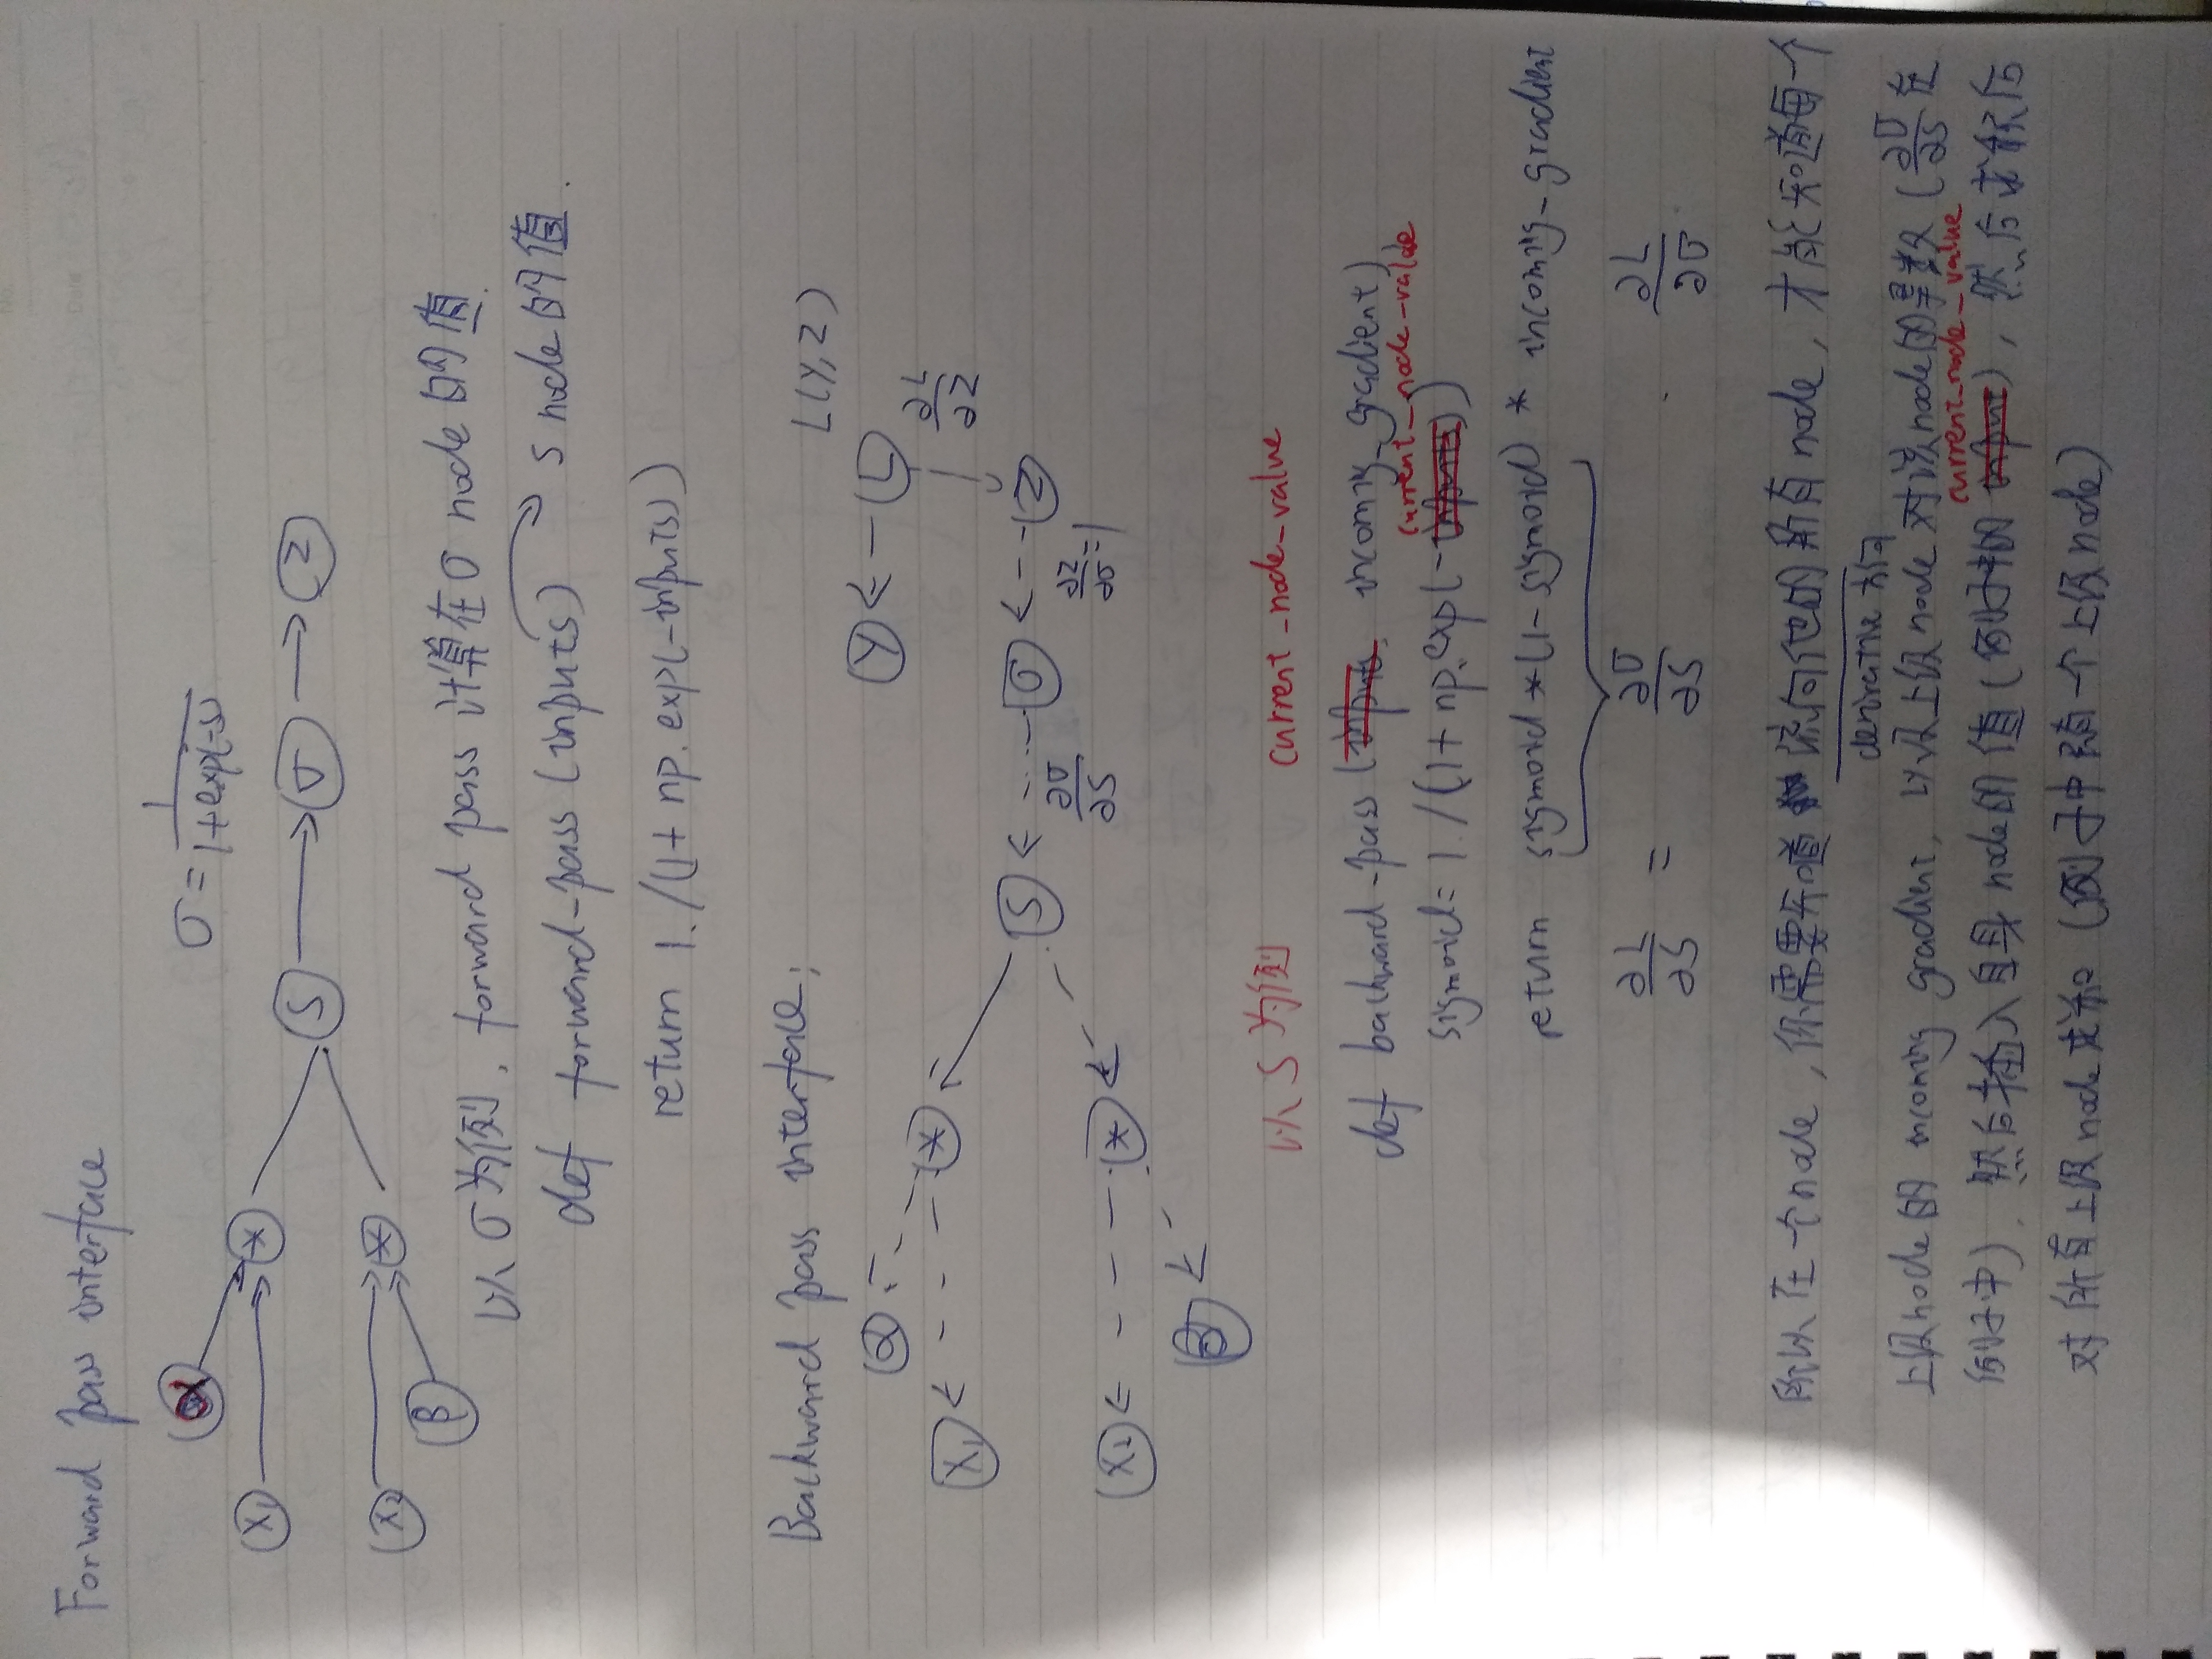 Forward pass interface
α
σ = 1 / (1+exp(-s))
x₁ *
S → σ → Z
x₂ *
β
以 σ 为例, forward pass 计算在 σ node 的值.
def forward-pass (inputs) → S node 的值.
return 1./(1+ np.exp(-inputs))
Backward pass interface:
L(Y, Z)
α Y ← L
x₁ * ∂L/∂Z
S ← σ ← Z
∂σ/∂S ∂Z/∂σ = 1
x₂ *
β
以 S 为例 current_node_value
def backward_pass (inputs, incoming_gradient),
current_node_value
sigmoid = 1./(1+ np.exp(-inputs))
return sigmoid*(1-sigmoid) * incoming_gradient
∂L/∂S = ∂σ/∂S · ∂L/∂σ
所以在一个node, 你需要知道 流向他的所有 node, 才能知道每一个
derivative 方向
上级node的 incoming gradient, 以及上级 node 对该node的导数 (∂σ/∂S 在
current_node_value
例子中), 然后插入自身 node的值 (例子中的 input), 然后求积后
对所有上级node求和 (例子中只有一个上级node)